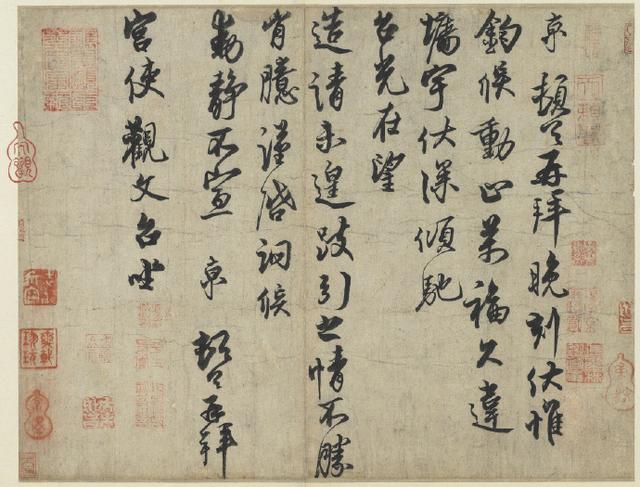 京 頓首再拜晚刻伏惟
鈞候動止萬福久違
墉宇伏深傾馳
台光在望
造請未遑跂引之情不勝
胷臆謹啓詞候
動靜不宣 京 頓首再拜
宮使觀文台坐